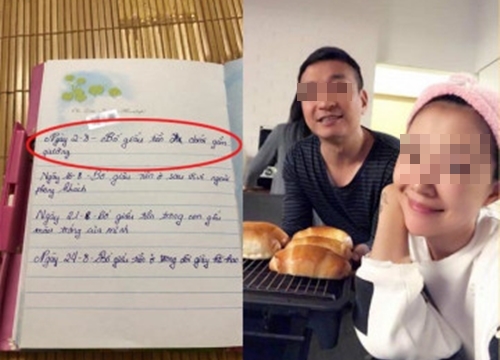 Ngày 2-8 - Bố giấu tiền ở dưới gầm
giường
Bố giấu tiền ở sau tivi ngoài
phòng khách
Ngày 21-8 Bố giấu tiền trong con gấu
màu trắng của mình
Ngày 24-8 Bố giấu tiền ở trong đôi giày thể thao